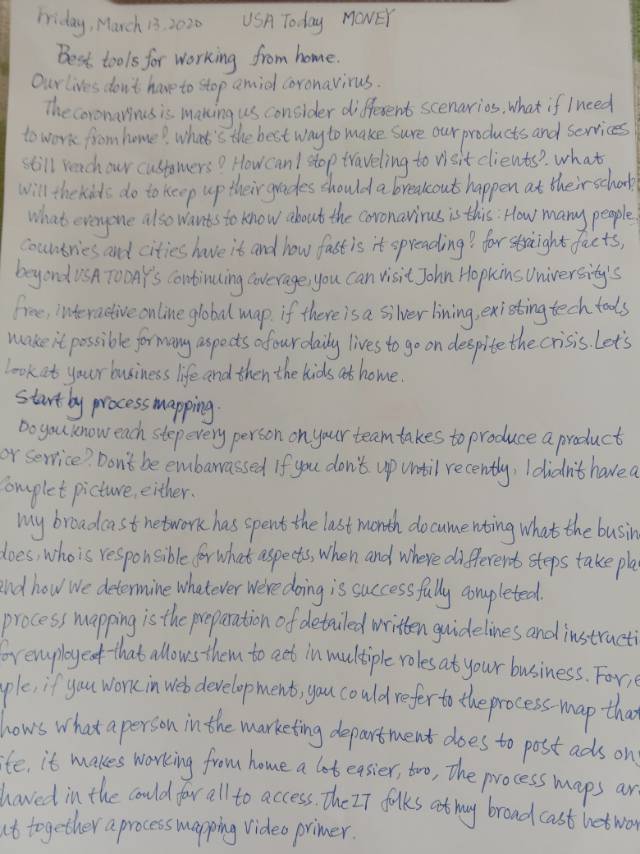 Friday, March 13, 2020 USA Today MONEY
Best tools for working from home.
Our lives don't have to stop amid coronavirus.
The coronavirus is making us consider different scenarios. What if I need
to work from home? What's the best way to make sure our products and services
still reach our customers? How can I stop traveling to visit clients? What
will the kids do to keep up their grades should a breakout happen at their school?
What everyone also wants to know about the coronavirus is this: How many people,
countries and cities have it and how fast is it spreading? for straight facts,
beyond USA TODAY's continuing coverage, you can visit John Hopkins University's
free, interactive online global map. if there is a silver lining, existing tech tools
make it possible for many aspects of our daily lives to go on despite the crisis. Let's
Look at your business life and then the kids at home.
Start by process mapping.
Do you know each step every person on your team takes to produce a product
or service? Don't be embarrassed If you don't. up until recently, I didn't have a
complet picture, either.
My broadcast network has spent the last month documenting what the busin
does, who is responsible for what aspects, when and where different steps take pla
and how we determine whatever we're doing is successfully completed.
process mapping is the preparation of detailed written guidelines and instructi
for employee that allows them to act in multiple roles at your business. For, e
ple, if you work in web development, you could refer to the process-map that
hows what a person in the marketing department does to post ads on
ite, it makes working from home a lot easier, too, The process maps ar
hared in the could for all to access. The IT folks at my broadcast networ
ut together a process mapping video primer.